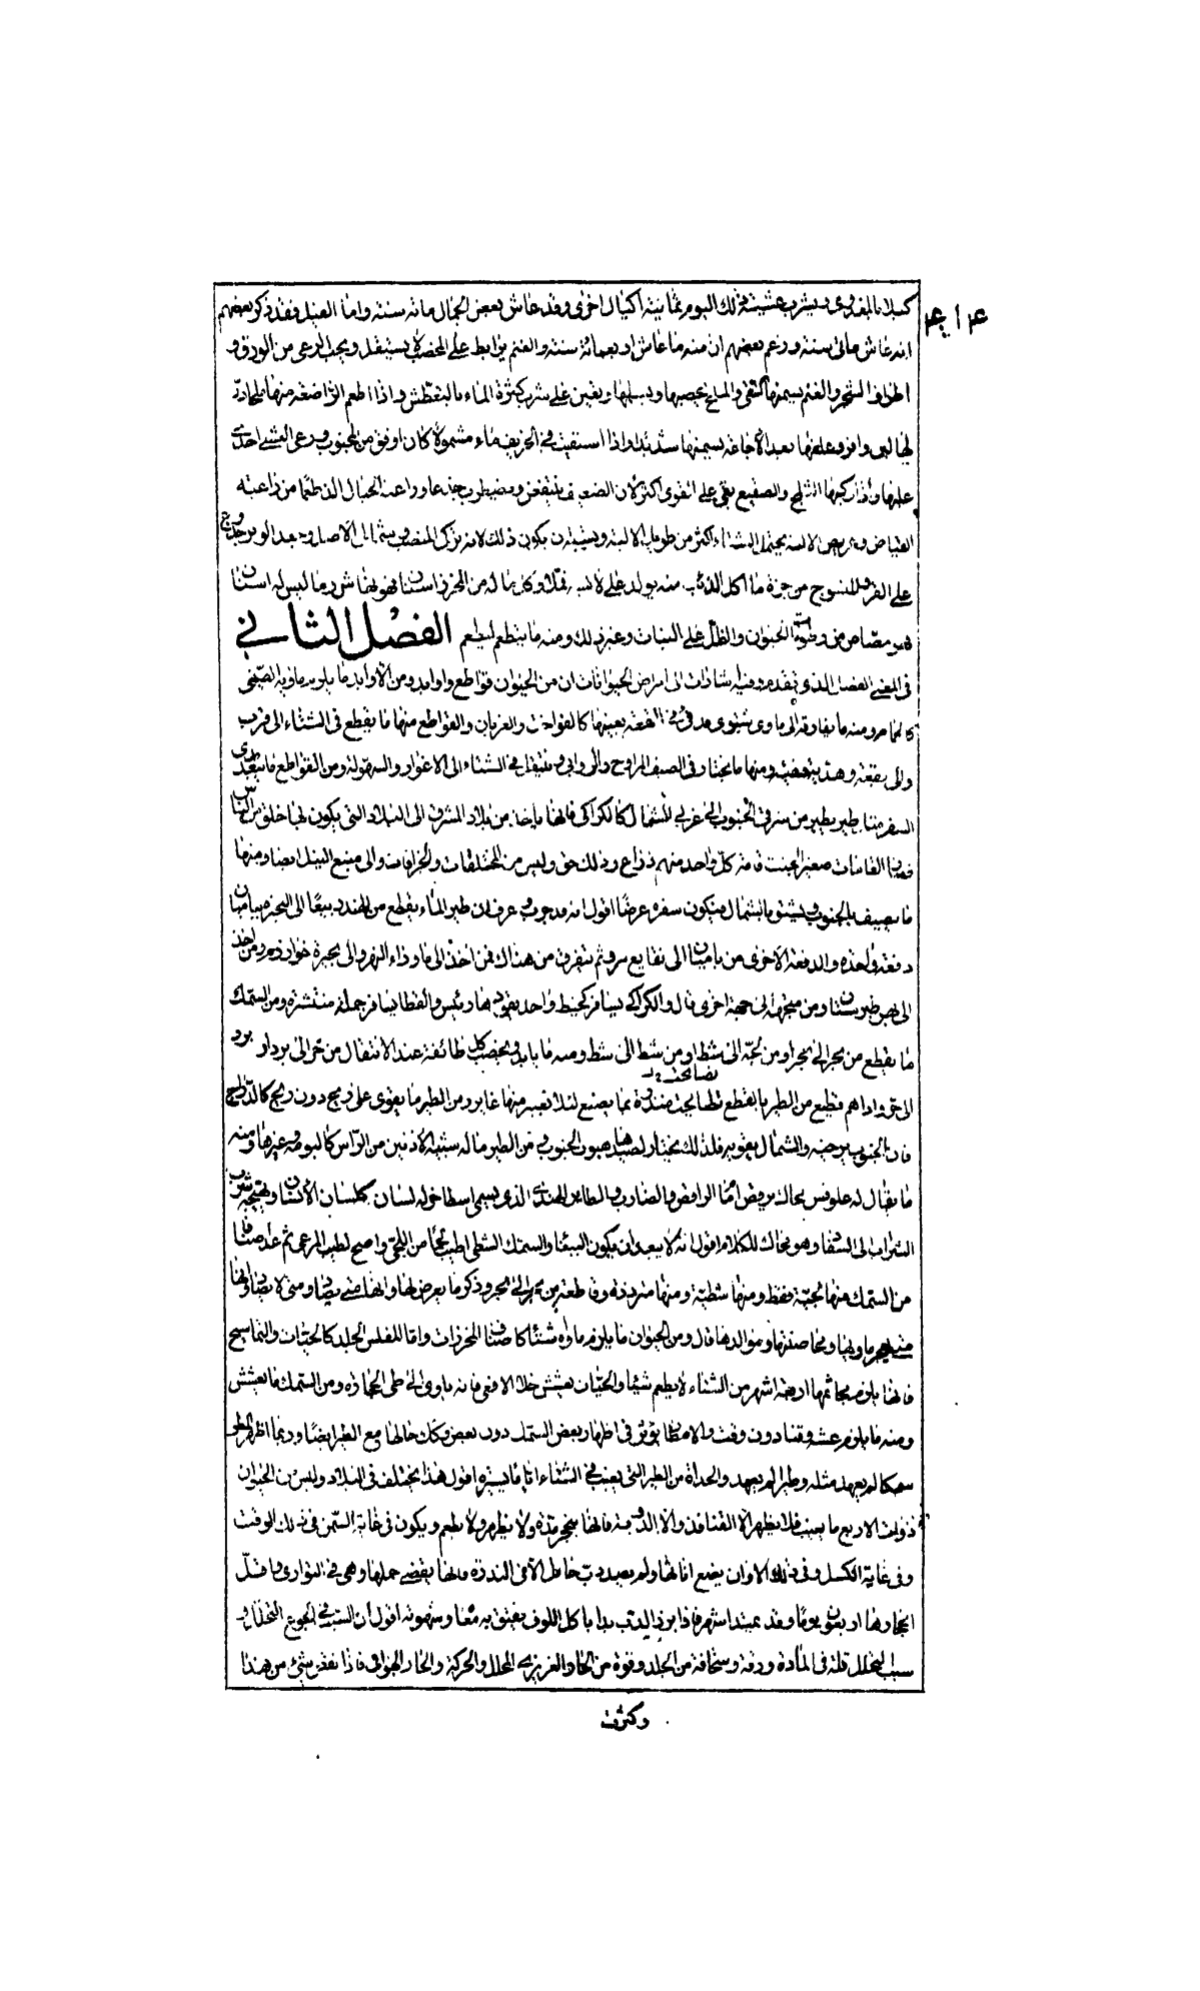 كيلا بالمقدونى ويشرب عشية ذلك اليوم ثمانية اكيال اخرى وقد عاش بعض الجمال مائة سنة واما الفيل فقد ذكر بعضهم
۴۱۴
انه عاش مائتى سنة وزعم بعضهم ان منه ما عاش اربعمائة سنة والغنم يرابط على الخصب لا يستنقل ويجب الرعى من الورق و
اطراف الشجر والغنم يسمنها النقى والملح يخصبها ويسلها ويعين على شرب كثرة الماء بالتعطش واذا اطعم الراضعة منها
لها لبن وعلفها بعد الاجاعة يسمنها شديدا واذا استقيت فى الخريف ماء مشمولا كان اوفق من الجنوب ورعى العشى
عليها واذا ركبها الثلج والصقيع بقى على القوى اكثر لان الضعيف ينتفض ويضطرب جزعا وراعية الجبال الذ طعما من راعية
الغياض وعريض الالية يحتمل الشتاء اكثر من طويل الالية ويشبه ان يكون ذلك لانه
على الفرو المنسوج من جزة ما اكل الذئب منه يولد على لابسه قملا وكل ما له من الحرز اسنان فهو نهاش وما ليس له اسنان
فهو مصاص من رطوبة الحيوان والظل على النبات وغير ذلك ومنه ما ينطعم لطعم الفصل الثانى
فى المعنى الفصل الذى تقدمه وفيه اشارات الى امراض الحيوانات ان من الحيوان قواطع واوابد ومن الاوابد ما يلزم ماويه الصيفى
كالحمام ومنه ما يفارقه الى ماوى شتوى بعينها كالفواخت والغربان والقواطع منها ما يقطع فى الشتاء الى قرب
والى بقعة ومنها ما يختار فى الصيف المراوح والروابى وينتقل فى الشتاء الى الاغوار والسهولة ومن القواطع ما يبعد
السفر منها طير يطير من شرق الجنوب الى غربى الشمال كالكراكى فانها ياخذ من بلاد المشرق الى البلاد التى يكون بها خلق من الناس
صغير الجثة قامة كل واحد منهم ذراع وذلك حق وليس من المختلقات والخرافات والى منبع النيل ايضا ومنها
ما يصيف بالجنوب ويشتو بالشمال فيكون سفره عرضا اقول انه مجرب وعرف ان طير الماء يقطع من الهند ربيعا الى البحر مياميان
دفعة واحدة والدفعة الاخرى من باميان الى نقايع سرو ثم يتفرق من هناك فمن اخذ الى ما وراء النهر والى بحيرة خوارزم ومن اخذ
الى بحر طبرستان ومن متجه الى جهة اخرى قال والكراكى يسافر كخيط واحد يقودها رئيس والقطا يسافر جملة منتشرة ومن السمك
ما يقطع من بحر الى بحر او من لجة الى شط او من شط الى شط ومنه ما يابد ويخصب كل طائفة عند الانتقال من حر الى برد او برد
الى حر واذا هم قطيع من الطير بالقطع مما يصنع لئلا منها غابر ومن الطير ما يقوى على ريح دون ريح كالدراج
فان الجنوب يرخيه والشمال يقويه فلذلك يختار لصيدها هبوب الجنوب ومن الطير ما له شبه الاذنين من الراس كالبوم وغيرها ومنه
ما يقال له علونس يحاك يرقص امام الراقص والضارب والطاير الهندى الذى يسمى اسطاخوله لسان كلسان الانسان ويعجبه شرب
الشراب الى الشفا وهو محاك للكلام اقول انه لا يبعد ان يكون الببغا والسمك الشطى اطيب لحما من اللجى واصح لطيب المرعى ثم عد اصنافا
من السمك منها لجية فقط ومنها شطية ومنها متردة وقاطعة من بحر الى بحر وذكر ما يعرض لها وانها متى يصاد ومتى لا يصاد وانها
ماويها ومخاصمتها ومواليدها قال ومن الحيوان ما يلزم ماواه شتاء كاصناف المحرزات واما المفلس الجلد كالحيات والتماسيح
فانها يلزم مجاثمها اربعة اشهر من الشتاء لا يطعم شيئا والحيات يعشش خلا الافعى فانه ياوى الى الحجارة ومن السمك ما يعشش
ومنه ما يلزم عشه وقتا دون وقت والامطار يؤثر فى اظهار بعض السمك دون بعض وكذلك حالها مع الطير ايضا وربما اظهر المطر
سمكا لم يعهد مثله وطيرا لم يعهد والحداة من الطير التى يغيب فى الشتاء اياما يسيرة اقول هذا يختلف فى البلاد وليس من الحيوان
ذوات الاربع ما يغيب فلا يظهر الا القنافذ والا الدببة فانها ينحجر مدة ولا يظهر ولا يطعم ويكون فى غاية السمن فى ذلك الوقت
وفى غاية الكسل وفى ذلك الاوان يضع اناثها ولم يصد دب حامل الا فى الندرة فانها يقضى حملها وهى فى التوارى واقل
انحجارها اربعون يوما وقد يمتد اشهر فاذا برز الدب بدا باكل اللوف يفتق به معاه وشهوته اقول ان السبب فى الجوع التحلل و
سبب التحلل قلة فى المادة ورقة وسخافة من الجلد وقوة من الحار الغريزى المحلل والحركة والحار الهوائى فاذا نقص شئ من هذا
وكثرت